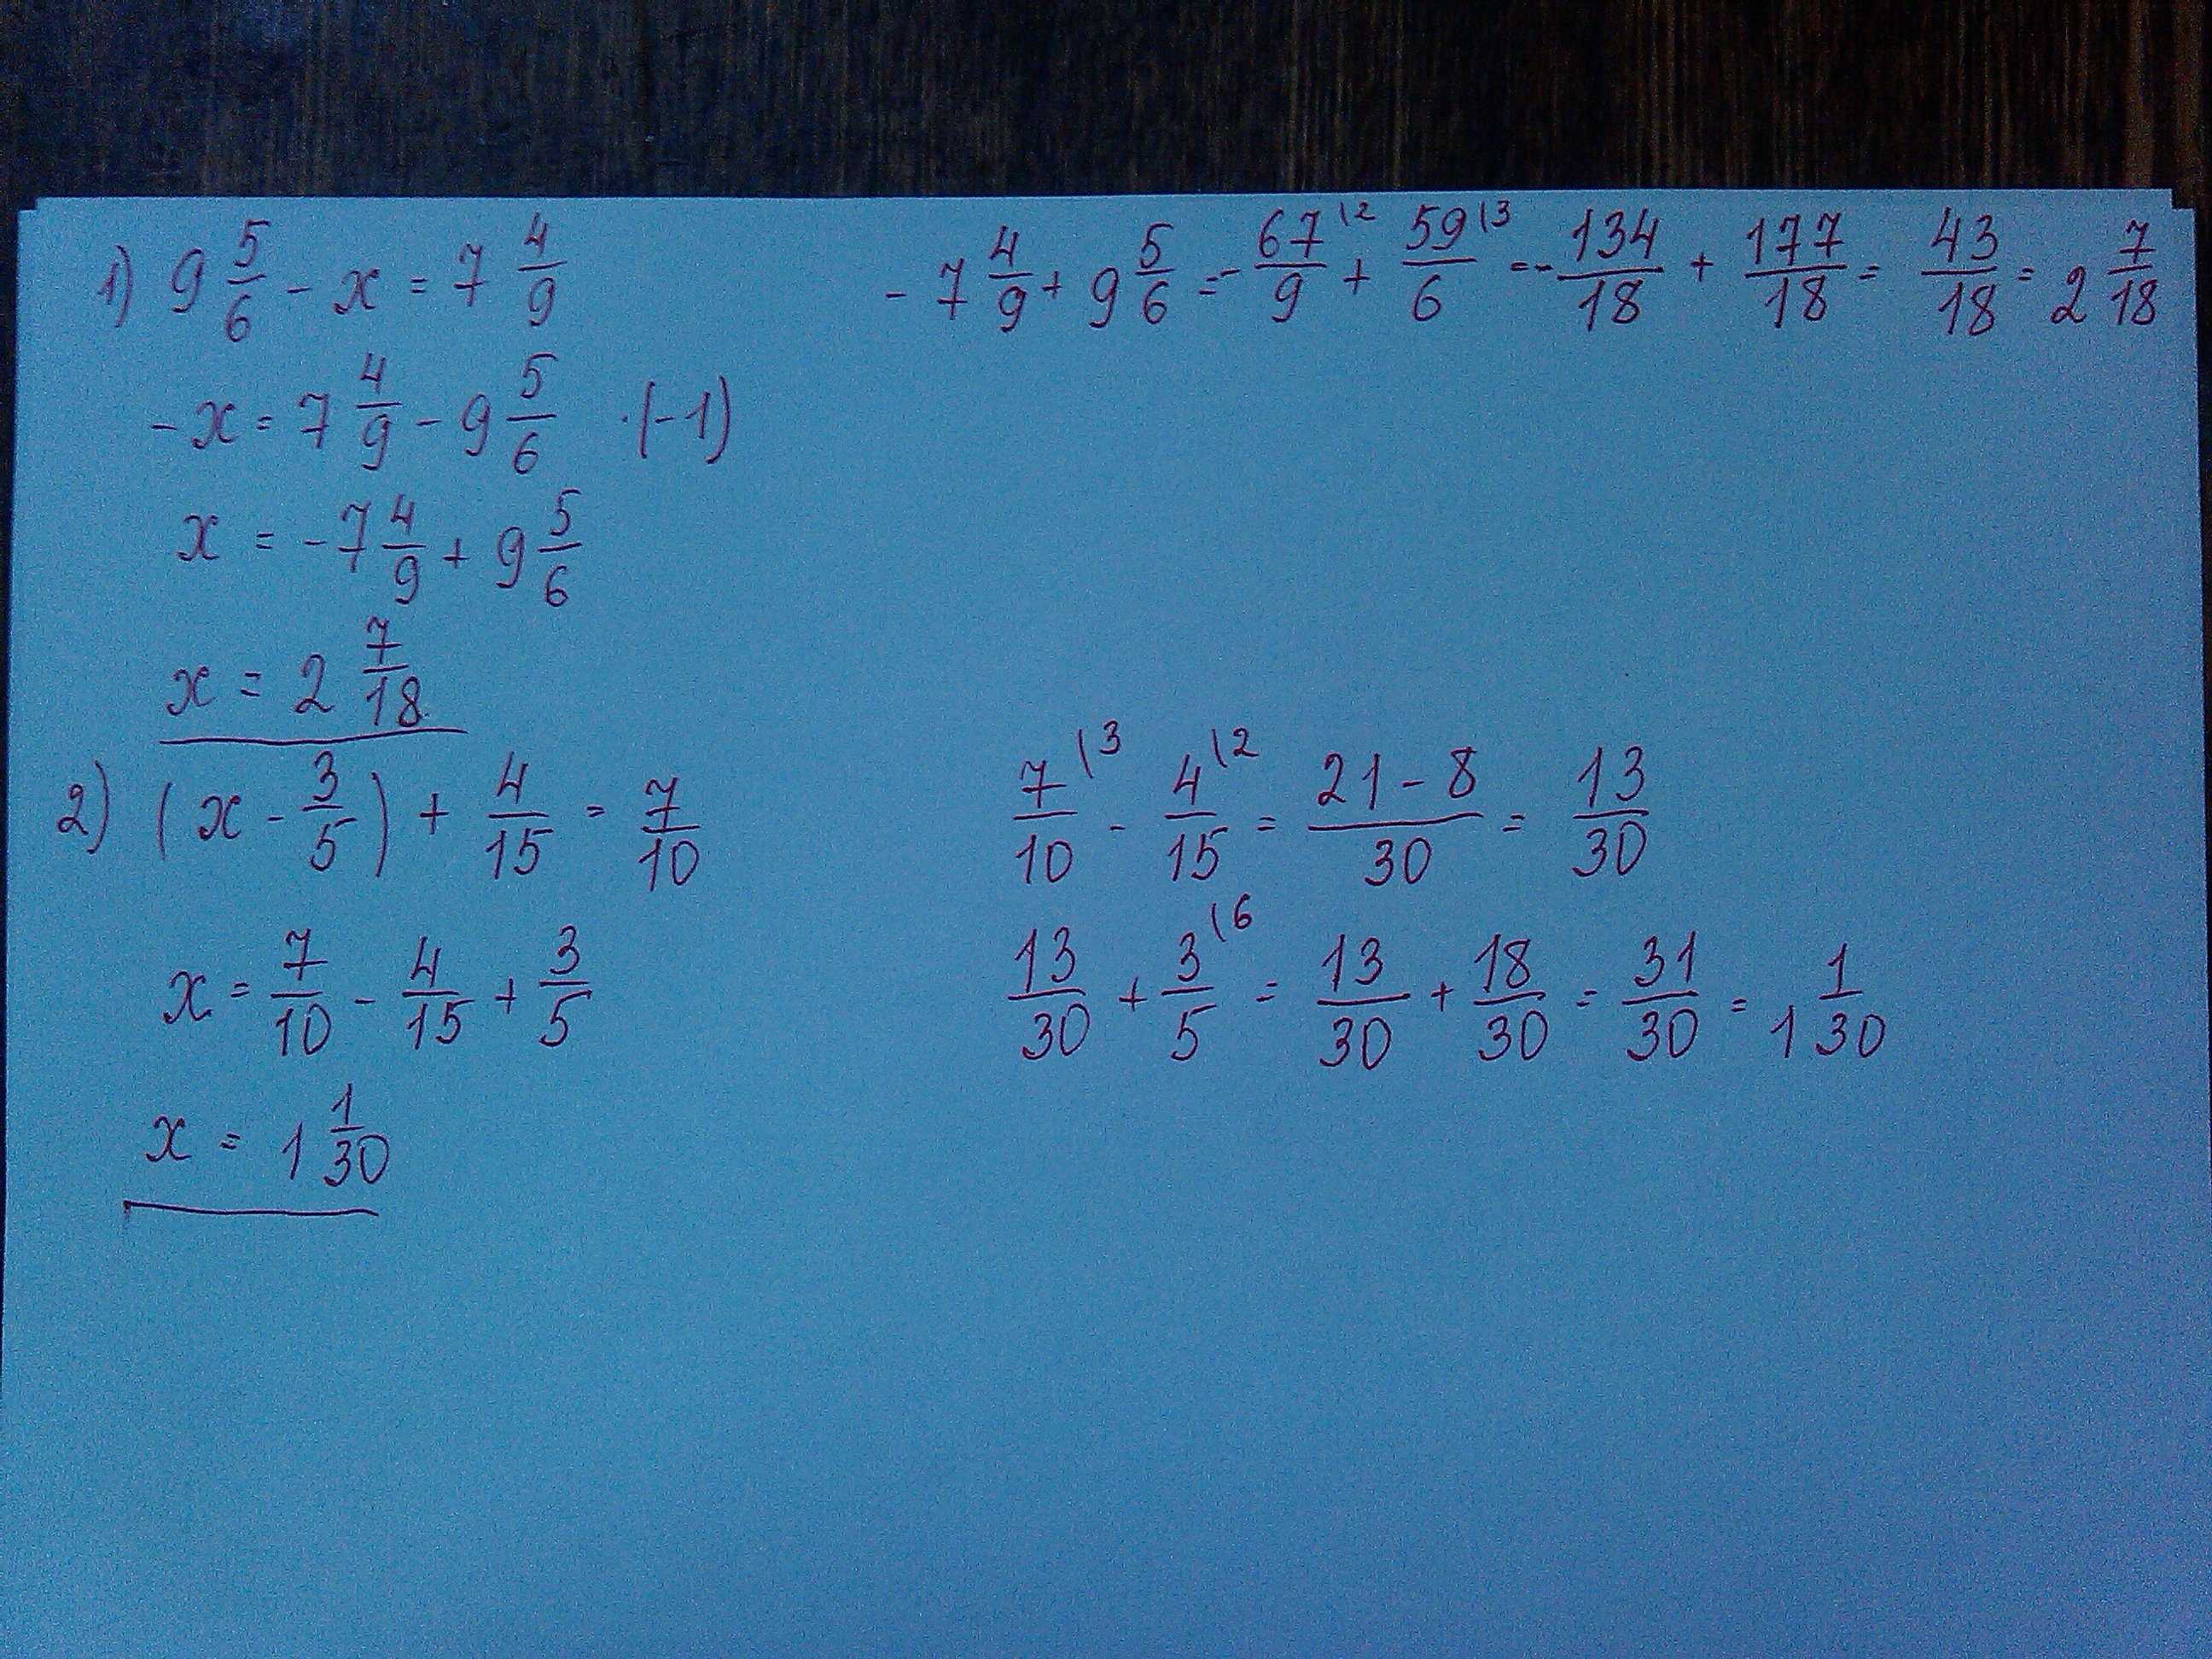 1) 9 5/6 - x = 7 4/9
-x = 7 4/9 - 9 5/6 ·(-1)
x = -7 4/9 + 9 5/6
x = 2 7/18
- 7 4/9 + 9 5/6 = - 67\2/9 + 59\3/6 = - 134/18 + 177/18 = 43/18 = 2 7/18
2) (x - 3/5) + 4/15 = 7/10
x = 7/10 - 4/15 + 3/5
x = 1 1/30
7\3/10 - 4\2/15 = 21-8/30 = 13/30
13/30 + 3\6/5 = 13/30 + 18/30 = 31/30 = 1 1/30